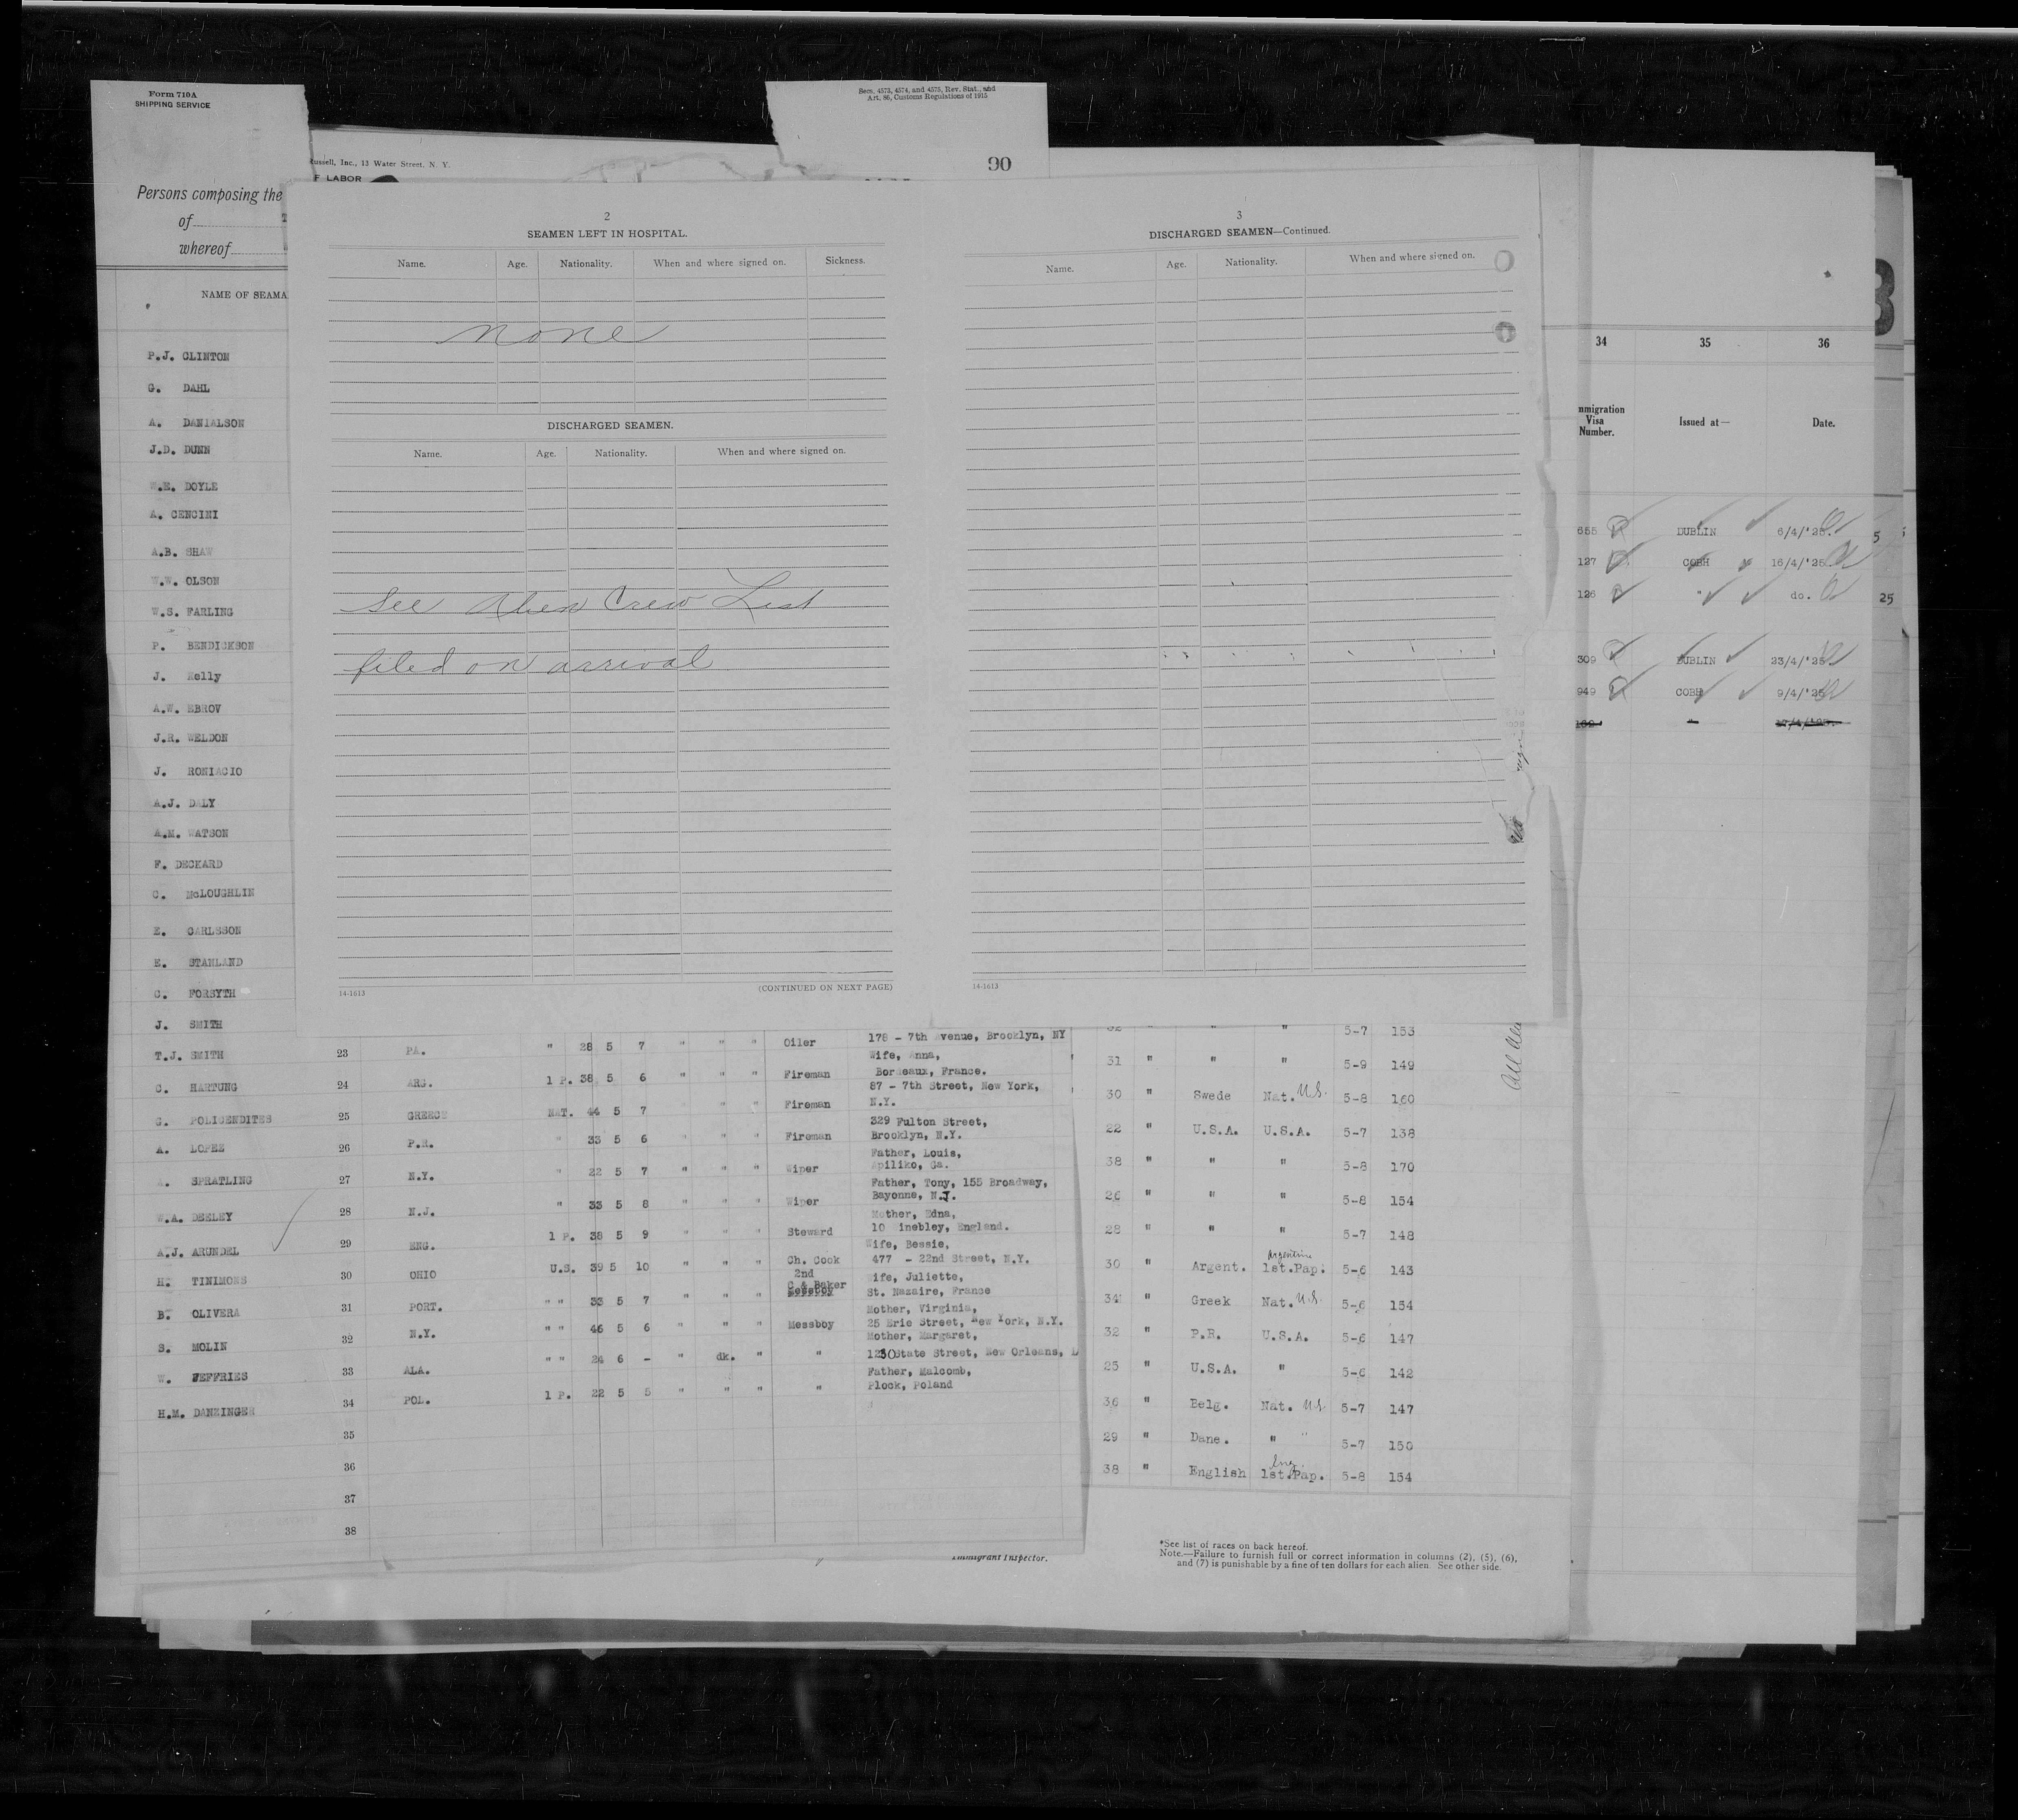 Form 710A
SHIPPING SERVICE
Secs. 4573, 4574, and 4575, Rev. Stat., and
Art. 86, Customs Regulations of 1915
Russell, Inc., 13 Water Street, N. Y.
F LABOR
90
Persons composing the
of
whereof
NAME OF SEAMA
P.J. CLINTON
G. DAHL
A. DANIALSON
J.D. DUNN
W.E. DOYLE
A. CENCINI
A.B. SHAW
W.W. OLSON
W.S. FARLING
P. BENDICKSON
J. Kelly
A.W. EBROV
J.R. WELDON
J. RONIACIO
A.J. DALY
A.M. WATSON
F. DECKARD
C. McLOUGHLIN
E. CARLSSON
E. STAHLAND
C. FORSYTH
J. SMITH
T.J. SMITH
C. HARTUNG
G. POLICENDITES
A. LOPEZ
A. SPRATLING
W.A. DEELEY
A.J. ARUNDEL
H. TINIMONS
B. OLIVERA
S. MOLIN
W. JEFFRIES
H.M. DANZINGER
2
SEAMEN LEFT IN HOSPITAL.
Name. Age. Nationality. When and where signed on. Sickness.
none
DISCHARGED SEAMEN.
Name. Age. Nationality. When and where signed on.
See Alien Crew List
filed on arrival
14-1613 (CONTINUED ON NEXT PAGE)
3
DISCHARGED SEAMEN—Continued.
Name. Age. Nationality. When and where signed on.
14-1613
34 35 36
mmigration
Visa
Number. Issued at— Date.
655 DUBLIN 6/4/'25.
5
127 COBH 16/4/'25
126 " do.
25
309 DUBLIN 23/4/'25
949 COBH 9/4/'25
178 - 7th Avenue, Brooklyn, NY
23 PA. " 28 5 7 " " " Oiler
Wife, Anna,
Bordeaux, France.
24 ARG. 1 P. 38 5 6 " " " Fireman
87 - 7th Street, New York,
N.Y.
25 GREECE NAT. 44 5 7 " " Fireman
329 Fulton Street,
Brooklyn, N.Y.
26 P.R. " 33 5 6 " " " Fireman
Father, Louis,
Apiliko, Ga.
27 N.Y. " 22 5 7 " " " Wiper
Father, Tony, 155 Broadway,
Bayonne, N.J.
28 N.J. " 33 5 8 " " " Wiper
Mother, Edna,
10 inebley, England.
29 ENG. 1 P. 38 5 9 " " " Steward
Wife, Bessie,
477 - 22nd Street, N.Y.
30 OHIO U.S. 39 5 10 " " " Ch. Cook
2nd
C & Baker
Wife, Juliette,
St. Nazaire, France
31 PORT. " " 33 5 7 " " "
Mother, Virginia,
25 Erie Street, New York, N.Y.
32 N.Y. " " 46 5 6 " " " Messboy
Mother, Margaret,
1230 State Street, New Orleans, L
33 ALA. " " 24 6 - " dk. " "
Father, Malcomb,
Plock, Poland
34 POL. 1 P. 22 5 5 " " " "
35
36
37
38
32 " " " 5-7 153
31 " " " 5-9 149
30 " Swede Nat. U.S. 5-8 160
22 " U.S.A. U.S.A. 5-7 138
38 " " " 5-8 170
26 " " " 5-8 154
28 " " " 5-7 148
Argentine
30 " Argent. 1st.Pap. 5-6 143
34 " Greek Nat. U.S. 5-6 154
32 " P.R. U.S.A. 5-6 147
25 " U.S.A. " 5-6 142
36 " Belg. Nat. U.S. 5-7 147
29 " Dane. " " 5-7 150
Eng.
38 " English 1st.Pap. 5-8 154
Immigrant Inspector.
*See list of races on back hereof.
Note.—Failure to furnish full or correct information in columns (2), (5), (6),
and (7) is punishable by a fine of ten dollars for each alien. See other side.